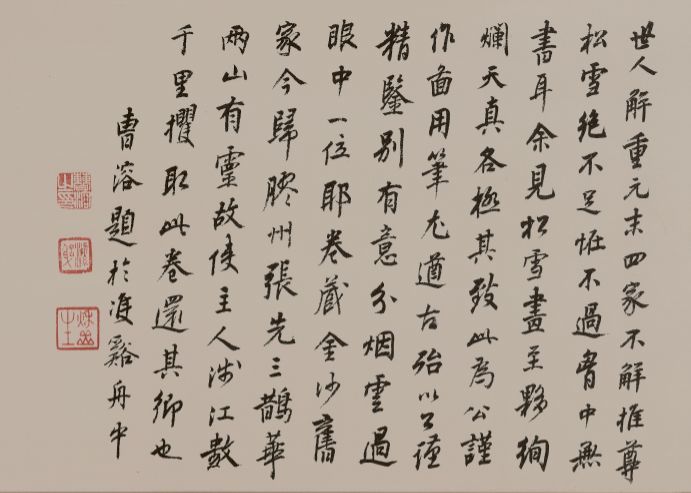 世人解重元末四家不解推尊
松雪絕不足恠不過胷中無
書耳余見松雪畫至夥絢
爛天真各極其致此為公謹
作啚用筆尤遒古殆以公謹
精鑒別有意分烟雲過
眼中一位耶卷藏金沙舊
家今歸膠州張先三鵲華
兩山有靈故使主人涉江數
千里攫取此卷還其鄉也
曹溶題於雙谿舟中